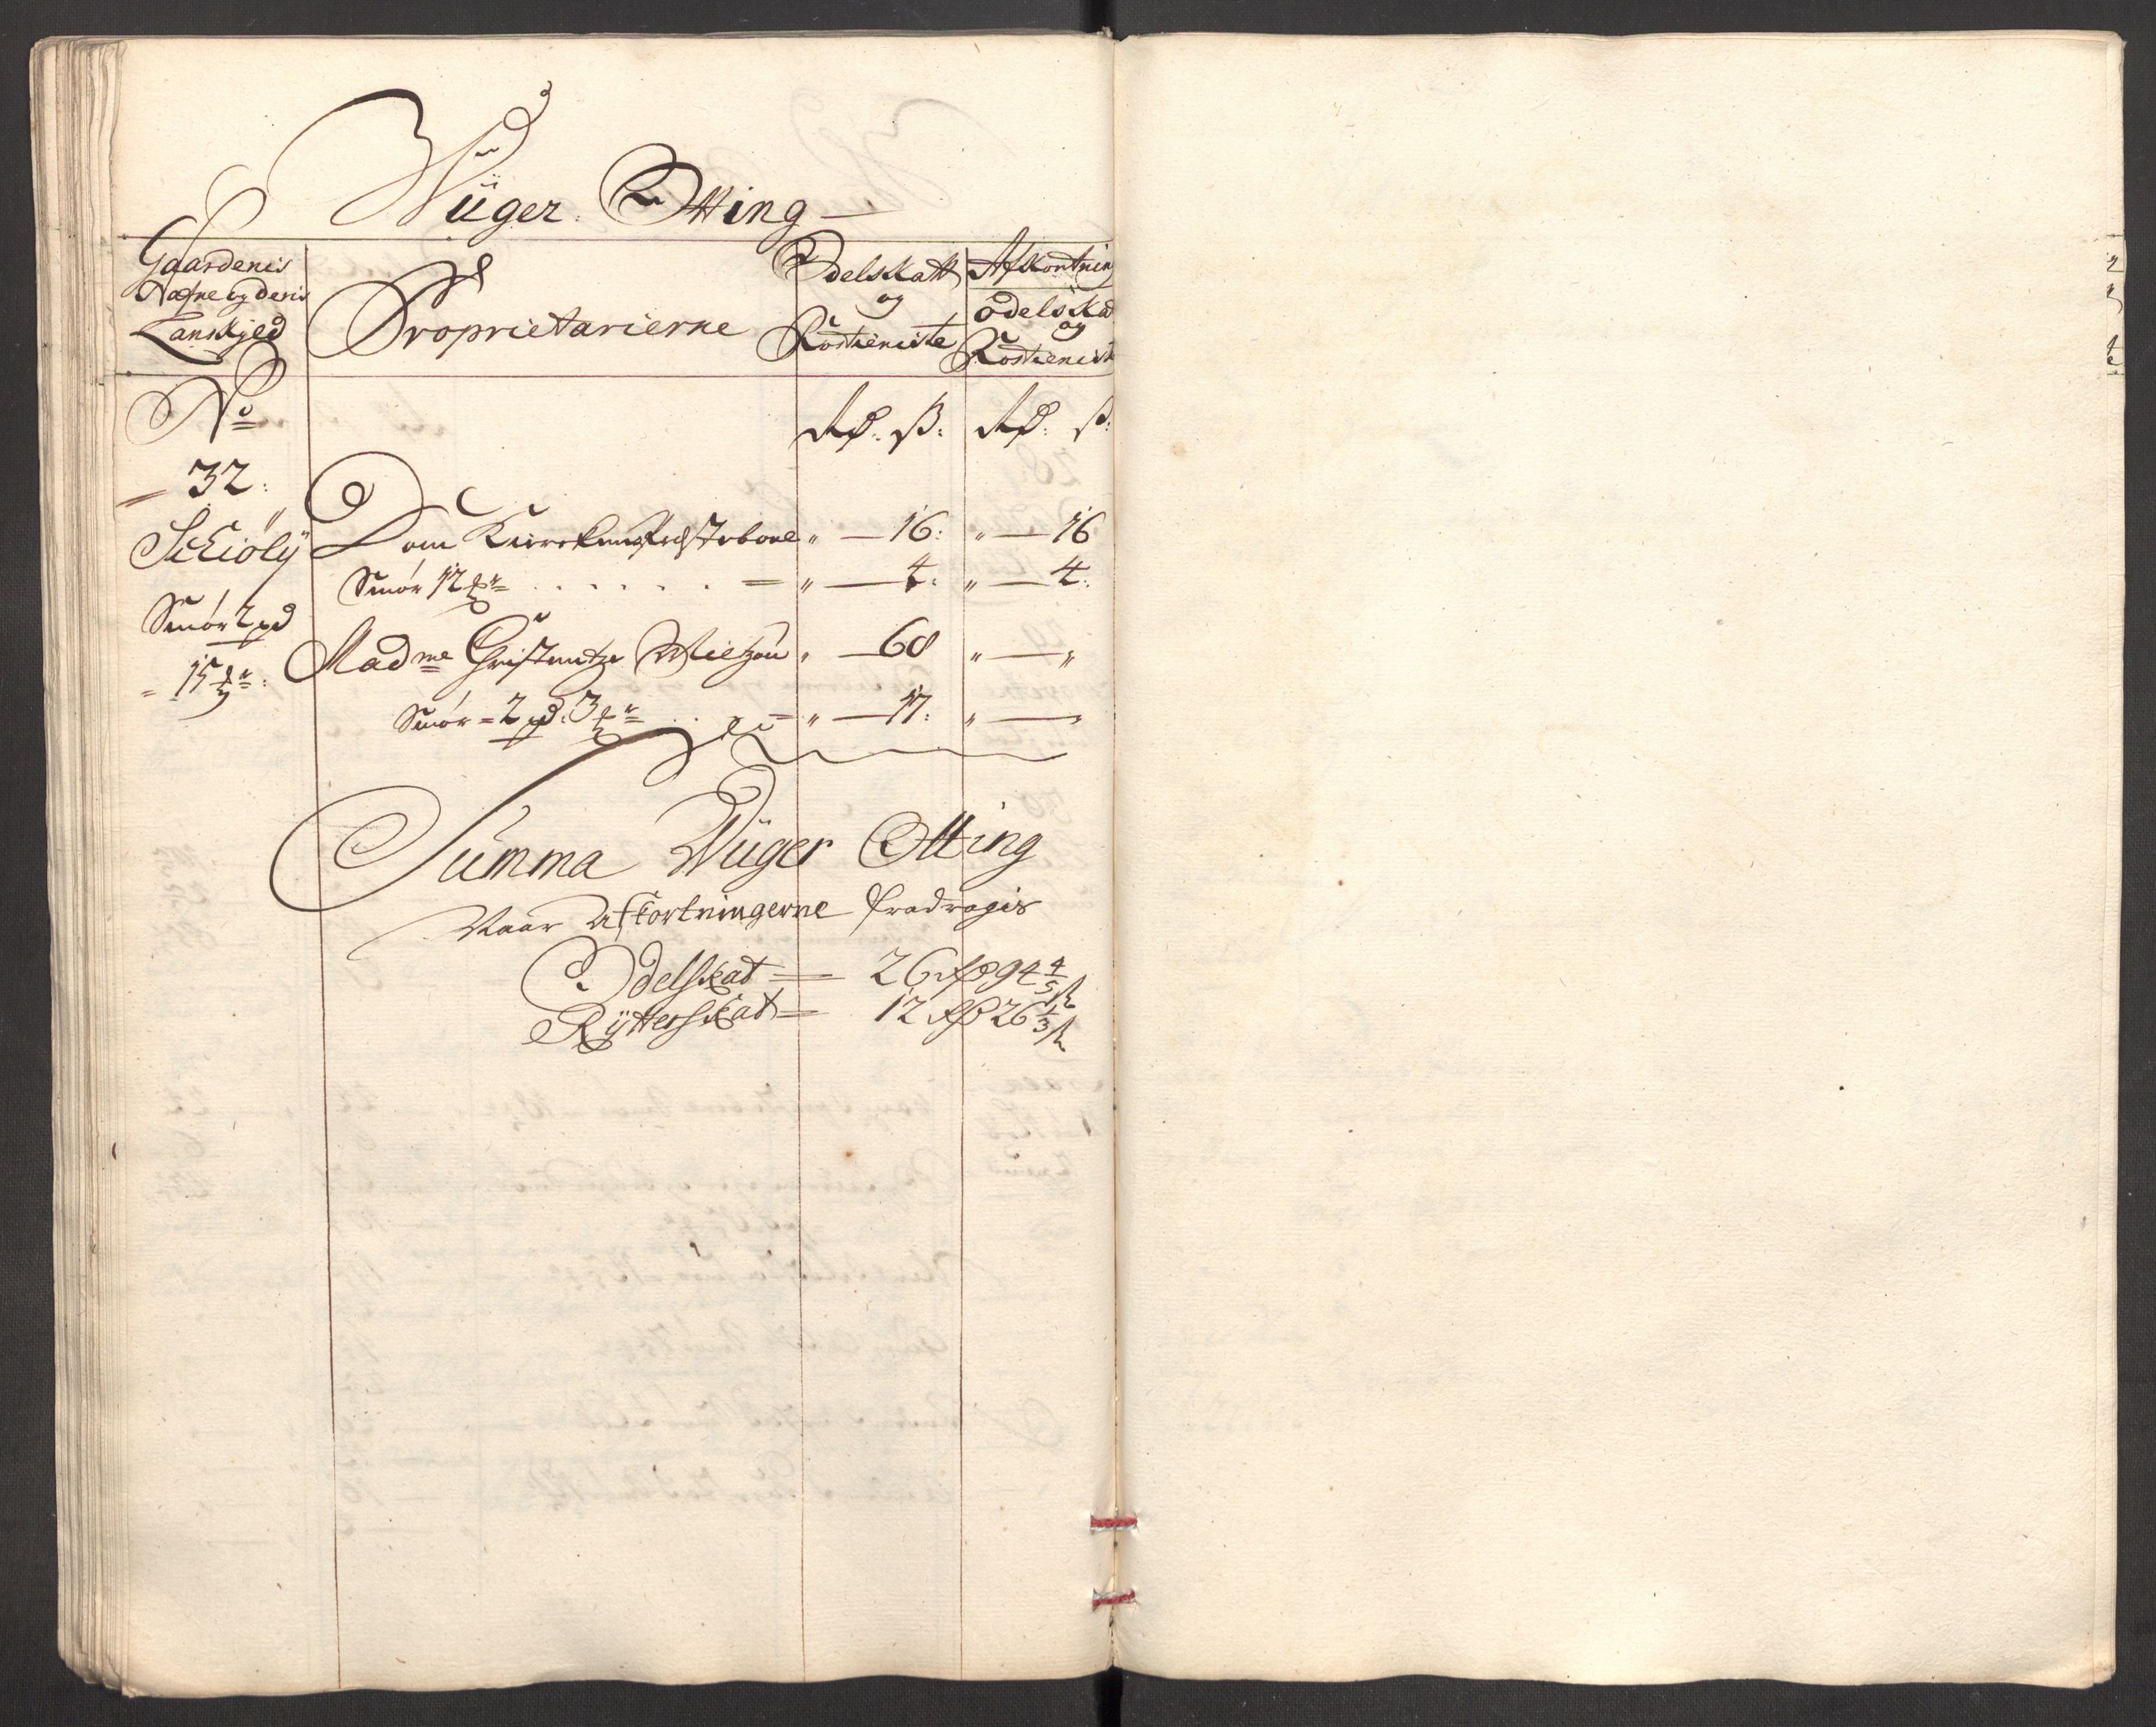 Wüger Otting
Gaardenis
Nafne og deris
Lanskyld
Proprietarierne
Odelskatt
og
Rostieniste
Afkortning
Odelska
og
Rostienist
No
Rd. ß: Rd: ß:
32:
Schiöly
Dom Kirrkens " 16: " 16
Smör 12 " 4: " 4:
Smör 2 pd
15
Madme Christentze " 68 " "
Smör = 2 pd: 3 " 17: "
Summa Wüger Otting
Naar Afkortningerne fradragis
Odelskat = 26 Rd 94 4/5 ß
Rytterskat = 12 Rd 26 1/3 ß